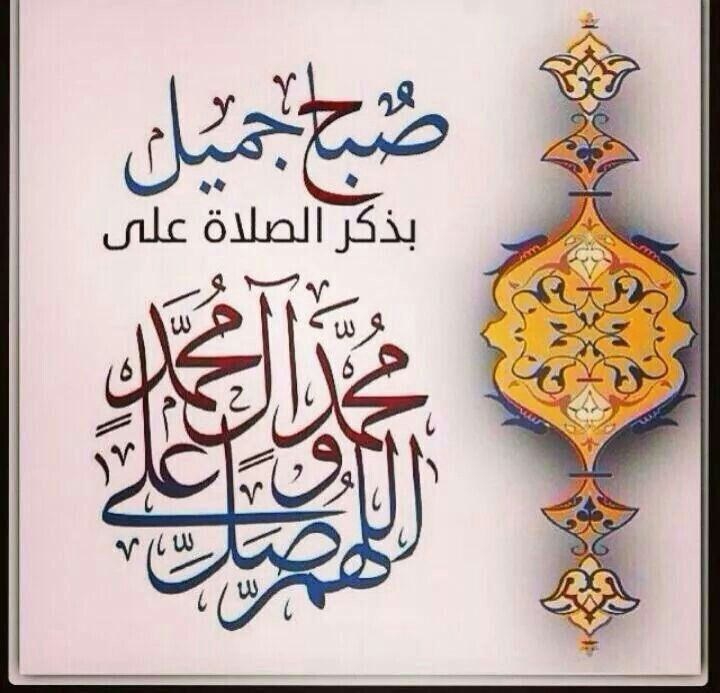 صُباح جميل
بذكر الصلاة على
اللهم صَلِّ على
مُحمَّدٍ وآل مُحمَّدٍ